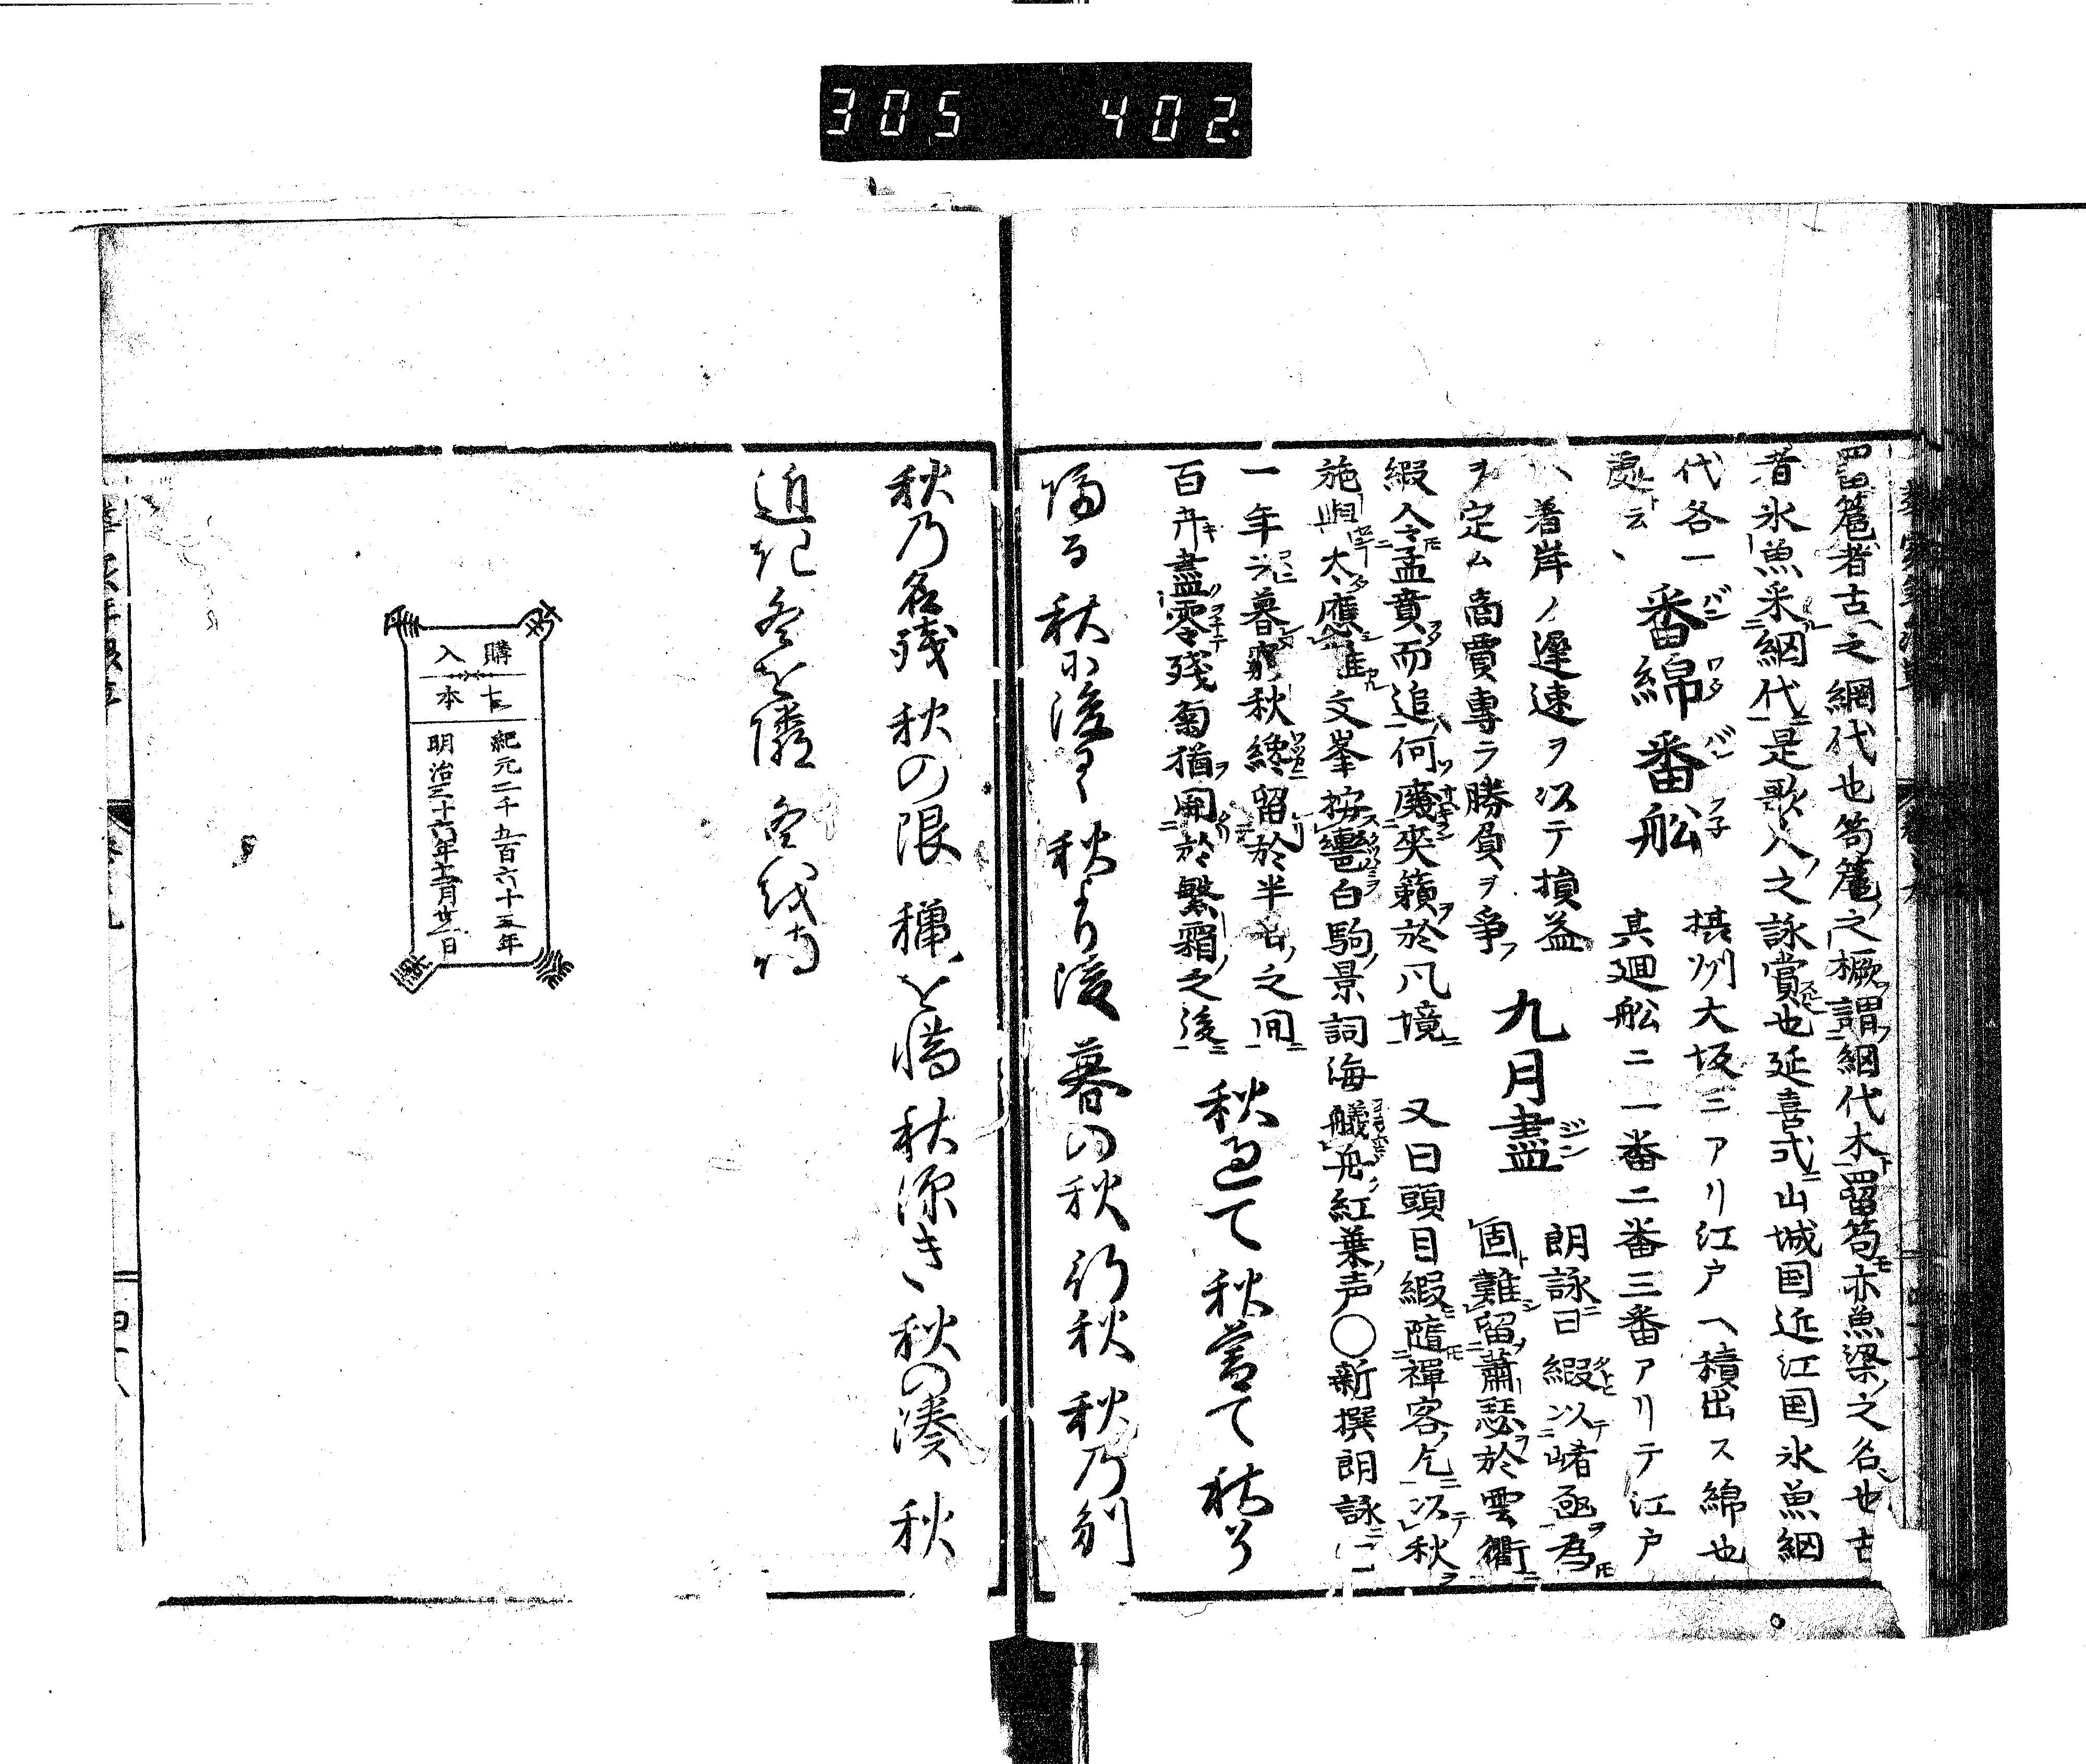 305 402.
罶䈪者古之網代也笱䈪之橛謂網代木罶笱亦魚梁之名也古
者氷魚采網代是歌人之詠賞也延喜式山城国近江国氷魚網
代各一
處云、
番綿番舩
バンワタバンフネ
摂州大坂ニアリ江戸ヘ積出ス綿也
其廻舩ニ一番二番三番アリテ江戸
ヘ着岸ノ遅速ヲ以テ損益
ヲ定ム商賈専ラ勝負ヲ争フ
九月盡
ジン
朗詠曰縦以崤函為
固難留蕭瑟於雲衢
縦令孟賁而追何廃爽籟於風境
又曰頭目縦随禅客乞以秋
施與太應難文峯按轡白駒景詞海艤舟紅葉声〇新撰朗詠ニ
一年云暮窮秋纔留於半日之間
百卉盡零残菊猶開於繁霜之後
秋過て
秋暮て
秋より
帰る
秋に後て
秋より後
暮の秋
行秋
秋乃別
秋乃名残
秋の限
秋を惜
秋深き
秋の湊
秋
近き冬を隣
冬を待
購入
古本
紀元二千五百六十五年
明治三十六年十二月廿二日